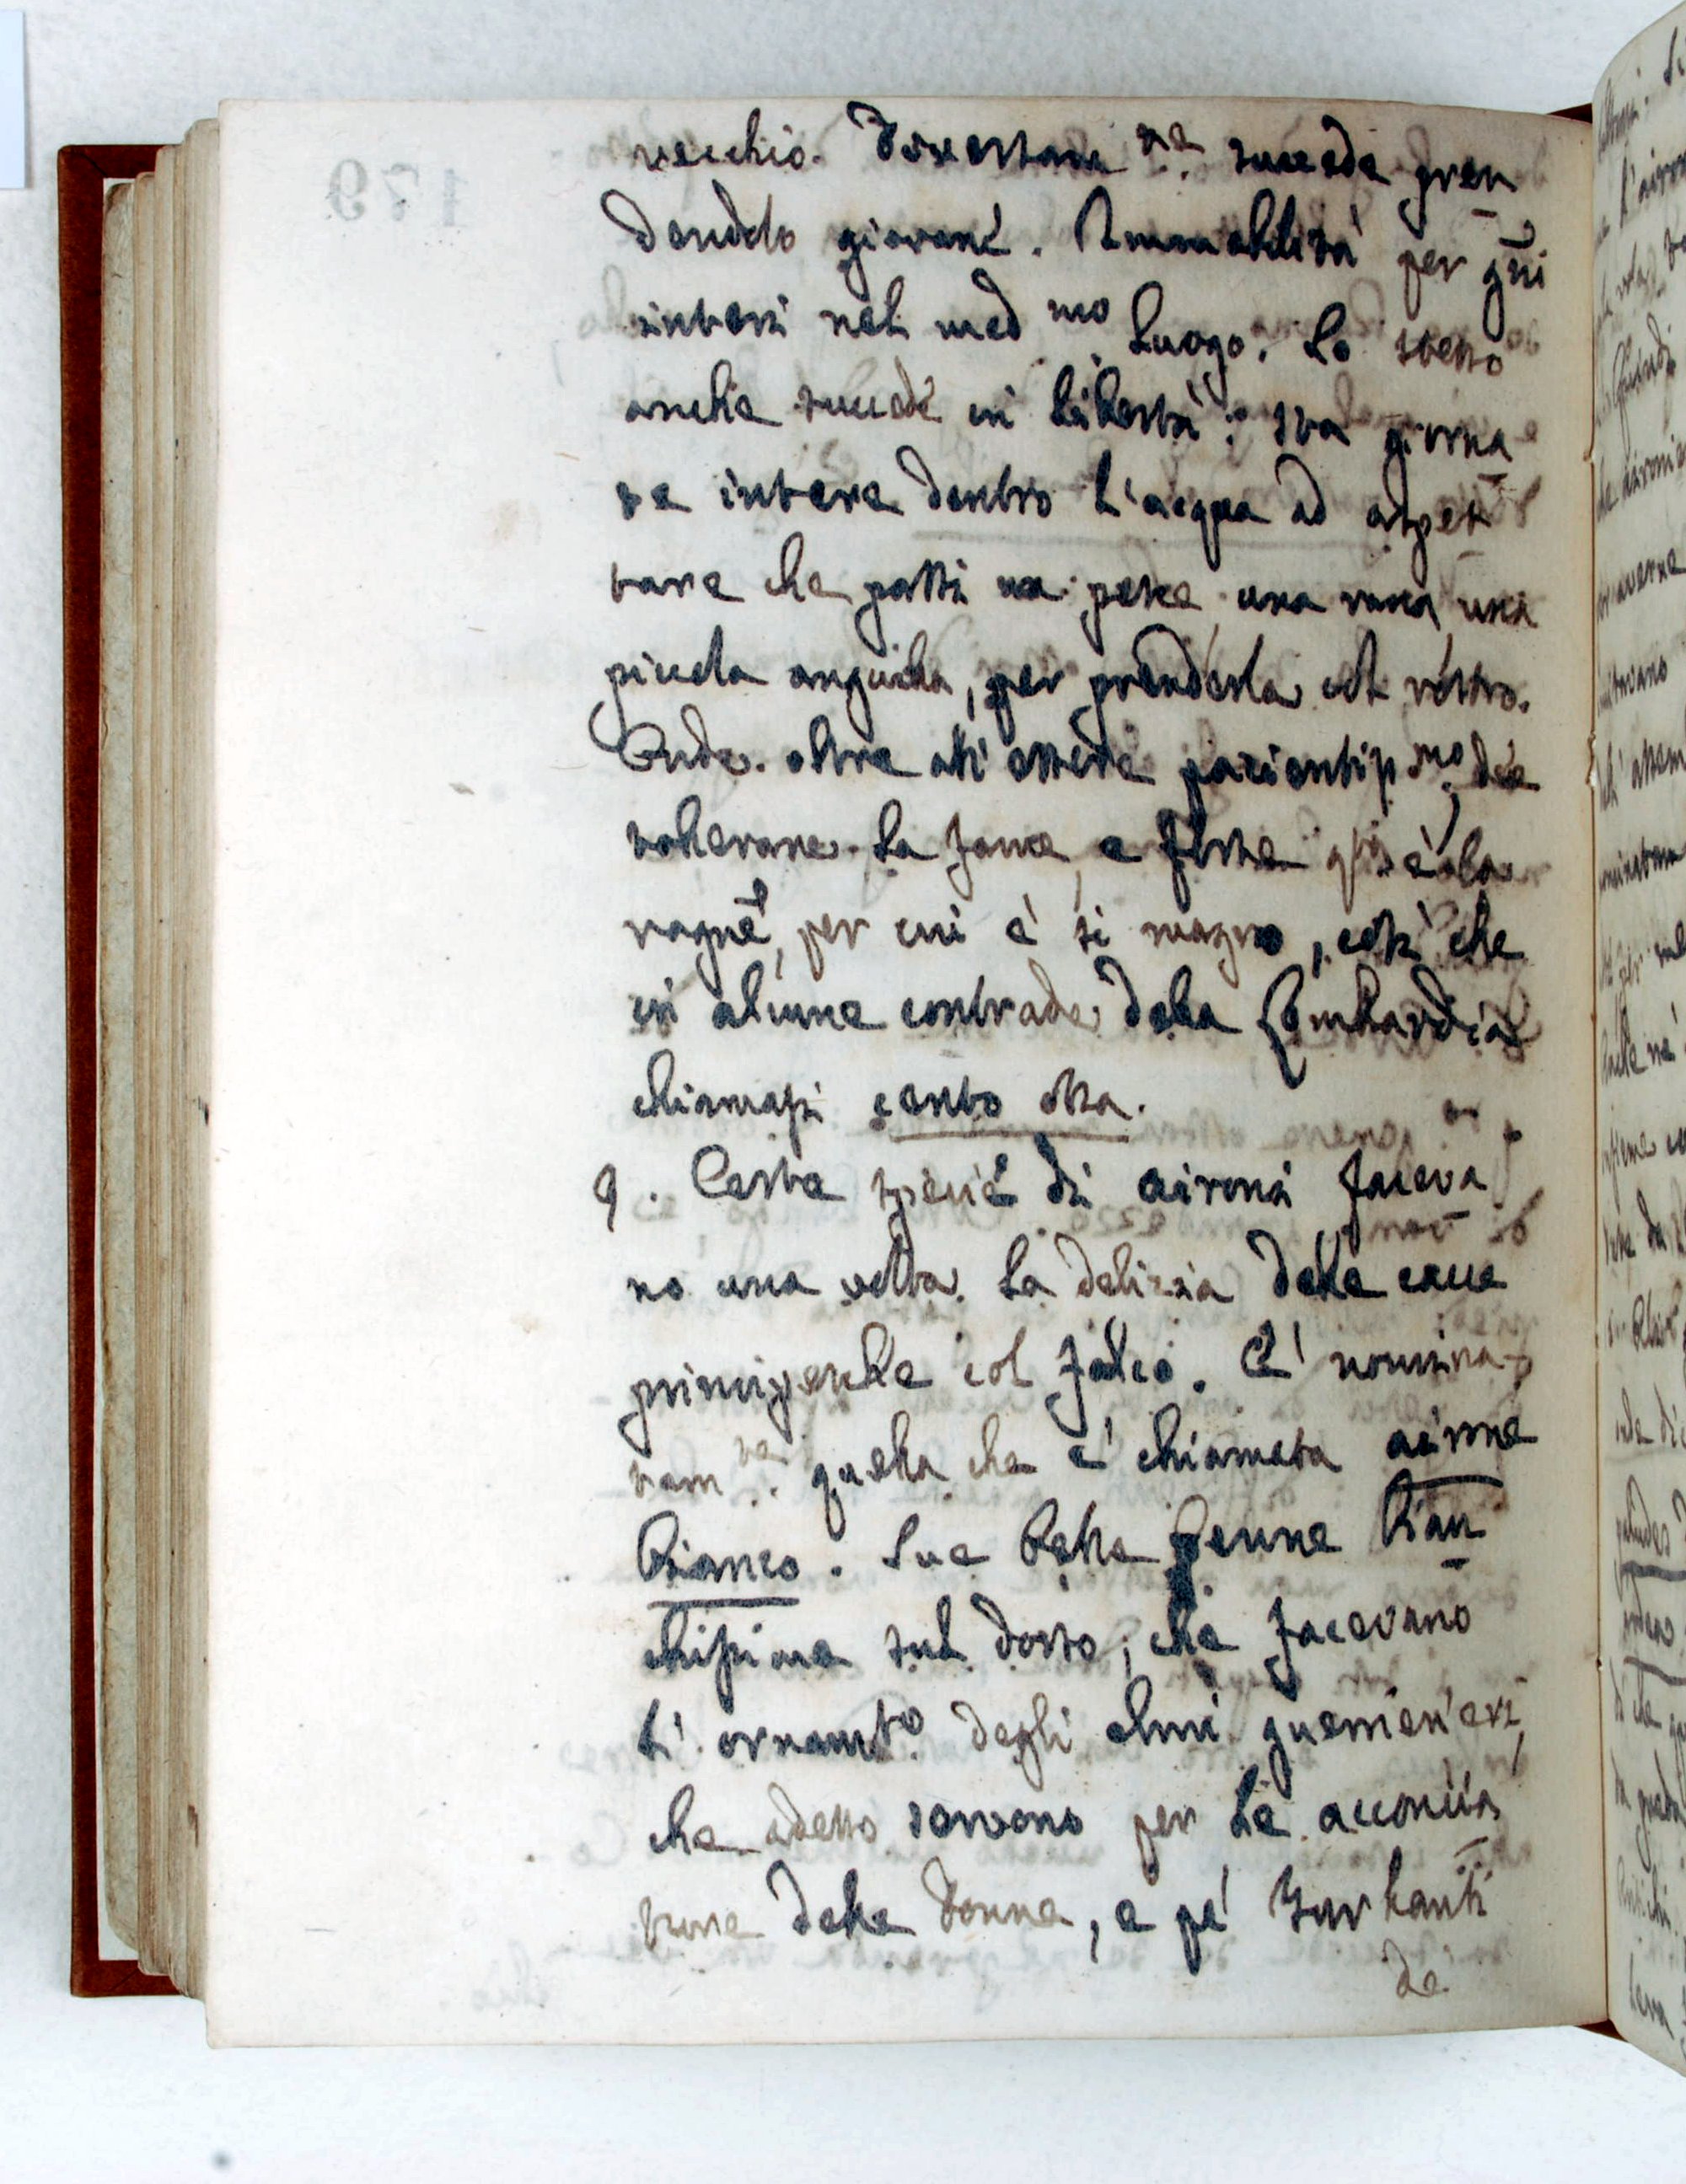 vecchio. Diversam.te succede pren
dendolo giovane. Immobilità per gni
interi nel med.mo luogo. Lo stesso
anche succede in libertà: sta giorna
te intere dentro l'acqua ad aspet
tare che passi un pesce una rana, una
piccola anguilla, per prenderla col rostro.
Onde oltre all'essere pazientiss.mo, dee
tollerare la fame, e forse
per cui è sì magro, così che
in alcune contrade della Lombardia
chiamasi cento ossa.
9. Certe specie di aironi faceva
no una volta la delizia delle cacce
principesche col falco. E' nomina
tam.te quella che è chiamata airone
bianco. Sue belle penne bian
chissime sul dosso, che facevano
l'ornam.to degli elmi guerrieri eri,
che adesso servono per le acconcia
ture delle donne, e pe' turbanti
de
179